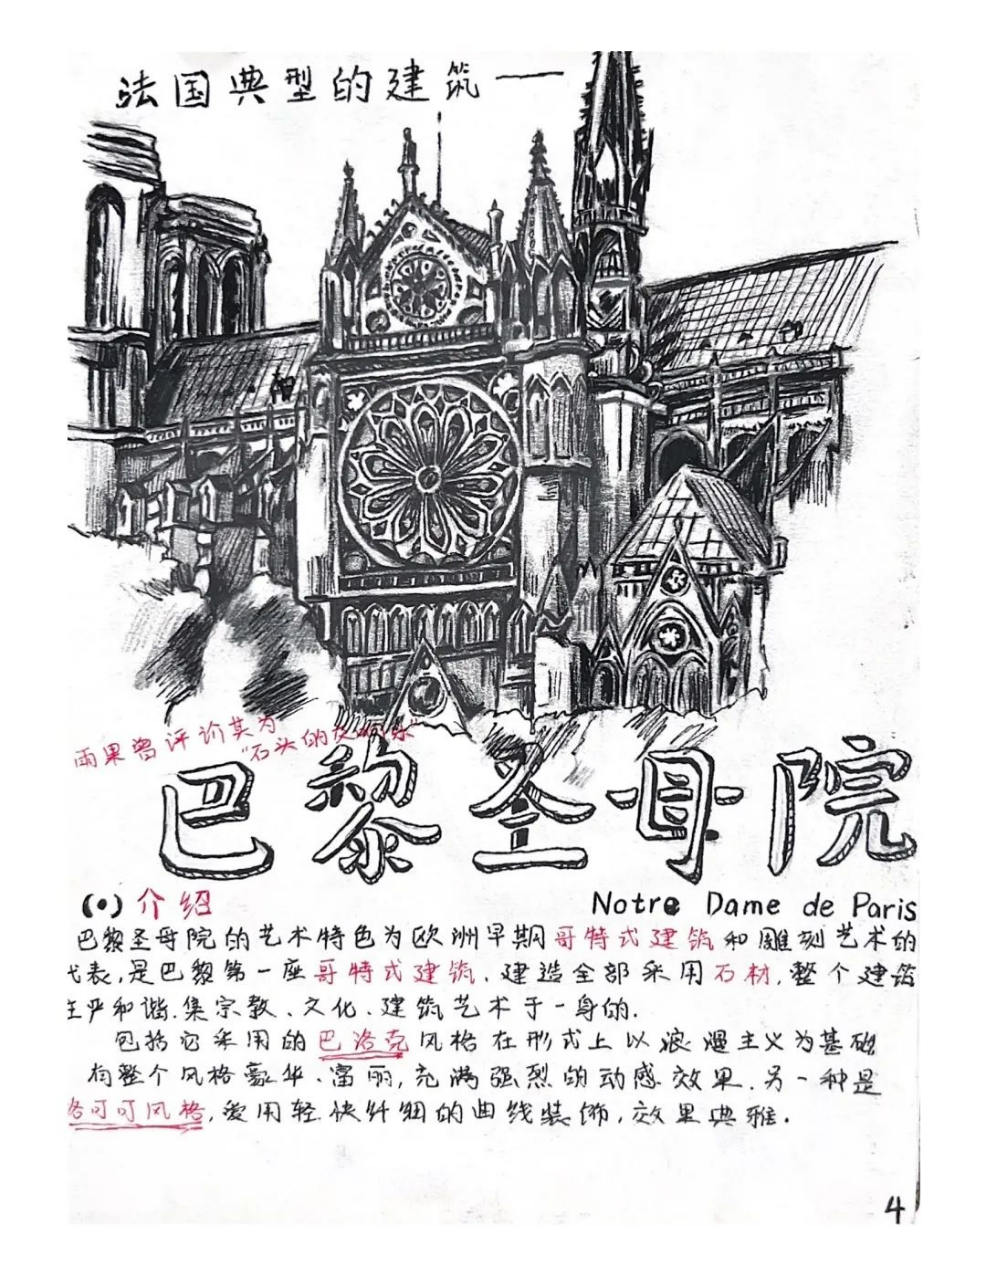 法国典型的建筑——
雨果曾评论其为
"石头的交响乐"
巴黎圣母院
(•) 介绍
Notre Dame de Paris
巴黎圣母院的艺术特色为欧洲早期哥特式建筑和雕刻艺术的
代表,是巴黎第一座哥特式建筑.建造全部采用石材,整个建筑
庄严和谐.集宗教、文化、建筑艺术于一身的.
包括它采用的巴洛克风格在形式上以浪漫主义为基础
向整个风格豪华、富丽,充满强烈的动感效果.另一种是
洛可可风格,爱用轻快纤细的曲线装饰,效果典雅.
4